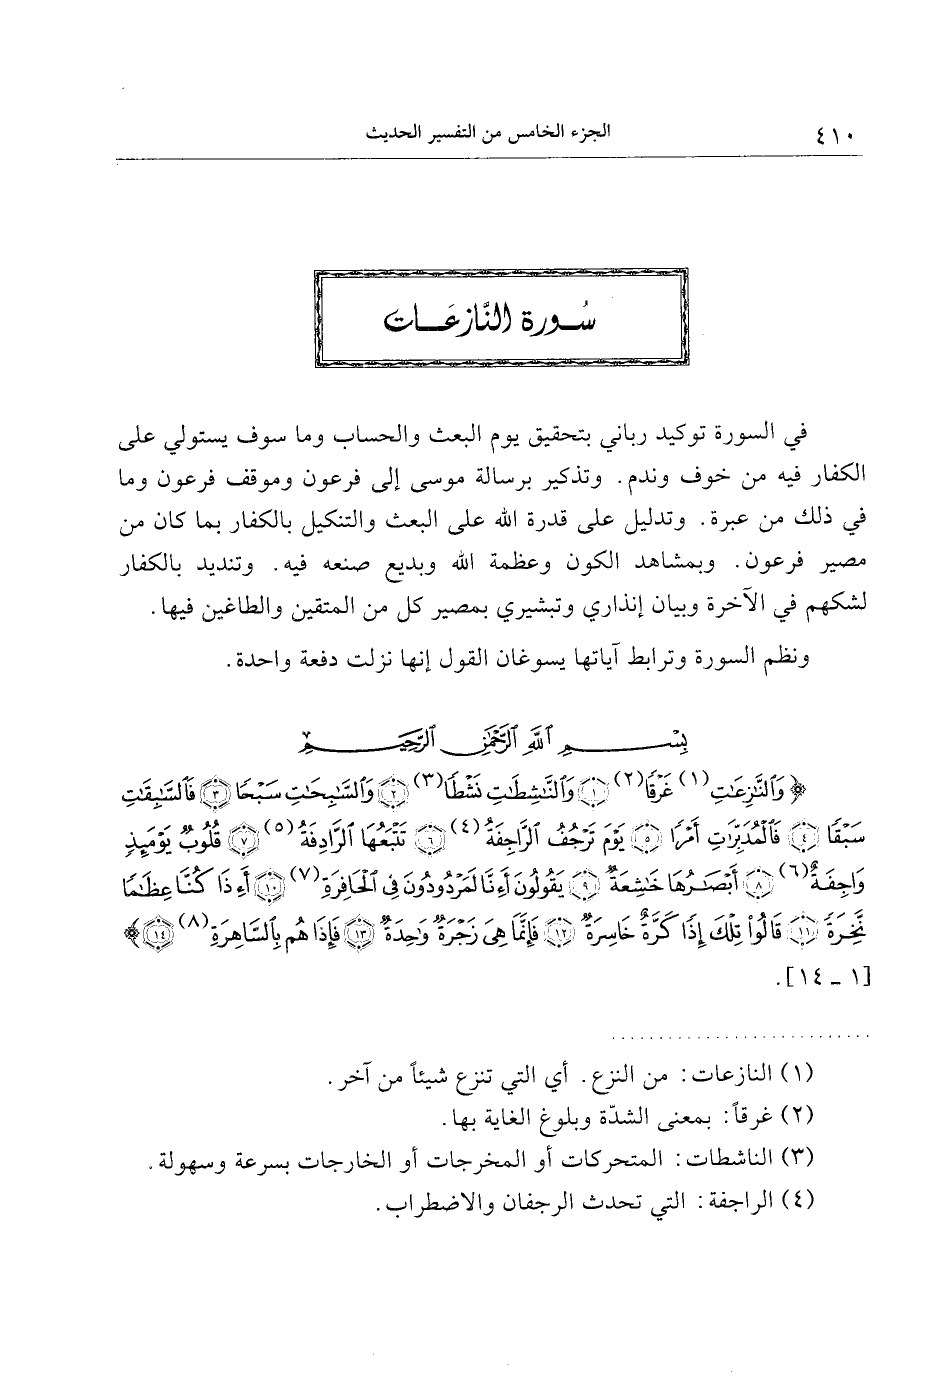 ٤١٠ الجزء الخامس من التفسير الحديث
سُورة النَّازعَات
في السورة توكيد رباني بتحقيق يوم البعث والحساب وما سوف يستولي على
الكفار فيه من خوف وندم. وتذكير برسالة موسى إلى فرعون وموقف فرعون وما
في ذلك من عبرة. وتدليل على قدرة الله على البعث والتنكيل بالكفار بما كان من
مصير فرعون. وبمشاهد الكون وعظمة الله وبديع صنعه فيه. وتنديد بالكفار
لشكهم في الآخرة وبيان إنذاري وتبشيري بمصير كل من المتقين والطاغين فيها.
ونظم السورة وترابط آياتها يسوغان القول إنها نزلت دفعة واحدة.
بِسْمِ ٱللَّهِ ٱلرَّحْمَٰنِ ٱلرَّحِيمِ
﴿ وَٱلنَّٰزِعَٰتِ (١) غَرْقًا (٢) ۝١ وَٱلنَّٰشِطَٰتِ نَشْطًا (٣) ۝٢ وَٱلسَّٰبِحَٰتِ سَبْحًا ۝٣ فَٱلسَّٰبِقَٰتِ
سَبْقًا ۝٤ فَٱلْمُدَبِّرَٰتِ أَمْرًا ۝٥ يَوْمَ تَرْجُفُ ٱلرَّاجِفَةُ (٤) ۝٦ تَتْبَعُهَا ٱلرَّادِفَةُ (٥) ۝٧ قُلُوبٌ يَوْمَئِذٍ
وَاجِفَةٌ (٦) ۝٨ أَبْصَٰرُهَا خَٰشِعَةٌ ۝٩ يَقُولُونَ أَءِنَّا لَمَرْدُودُونَ فِي ٱلْحَافِرَةِ (٧) ۝١٠ أَءِذَا كُنَّا عِظَٰمًا
نَّخِرَةً ۝١١ قَالُوا۟ تِلْكَ إِذًا كَرَّةٌ خَاسِرَةٌ ۝١٢ فَإِنَّمَا هِيَ زَجْرَةٌ وَٰحِدَةٌ ۝١٣ فَإِذَا هُم بِٱلسَّاهِرَةِ (٨) ۝١٤ ﴾
[١ ـ ١٤].
(١) النازعات: من النزع. أي التي تنزع شيئاً من آخر.
(٢) غرقاً: بمعنى الشدّة وبلوغ الغاية بها.
(٣) الناشطات: المتحركات أو المخرجات أو الخارجات بسرعة وسهولة.
(٤) الراجفة: التي تحدث الرجفان والاضطراب.